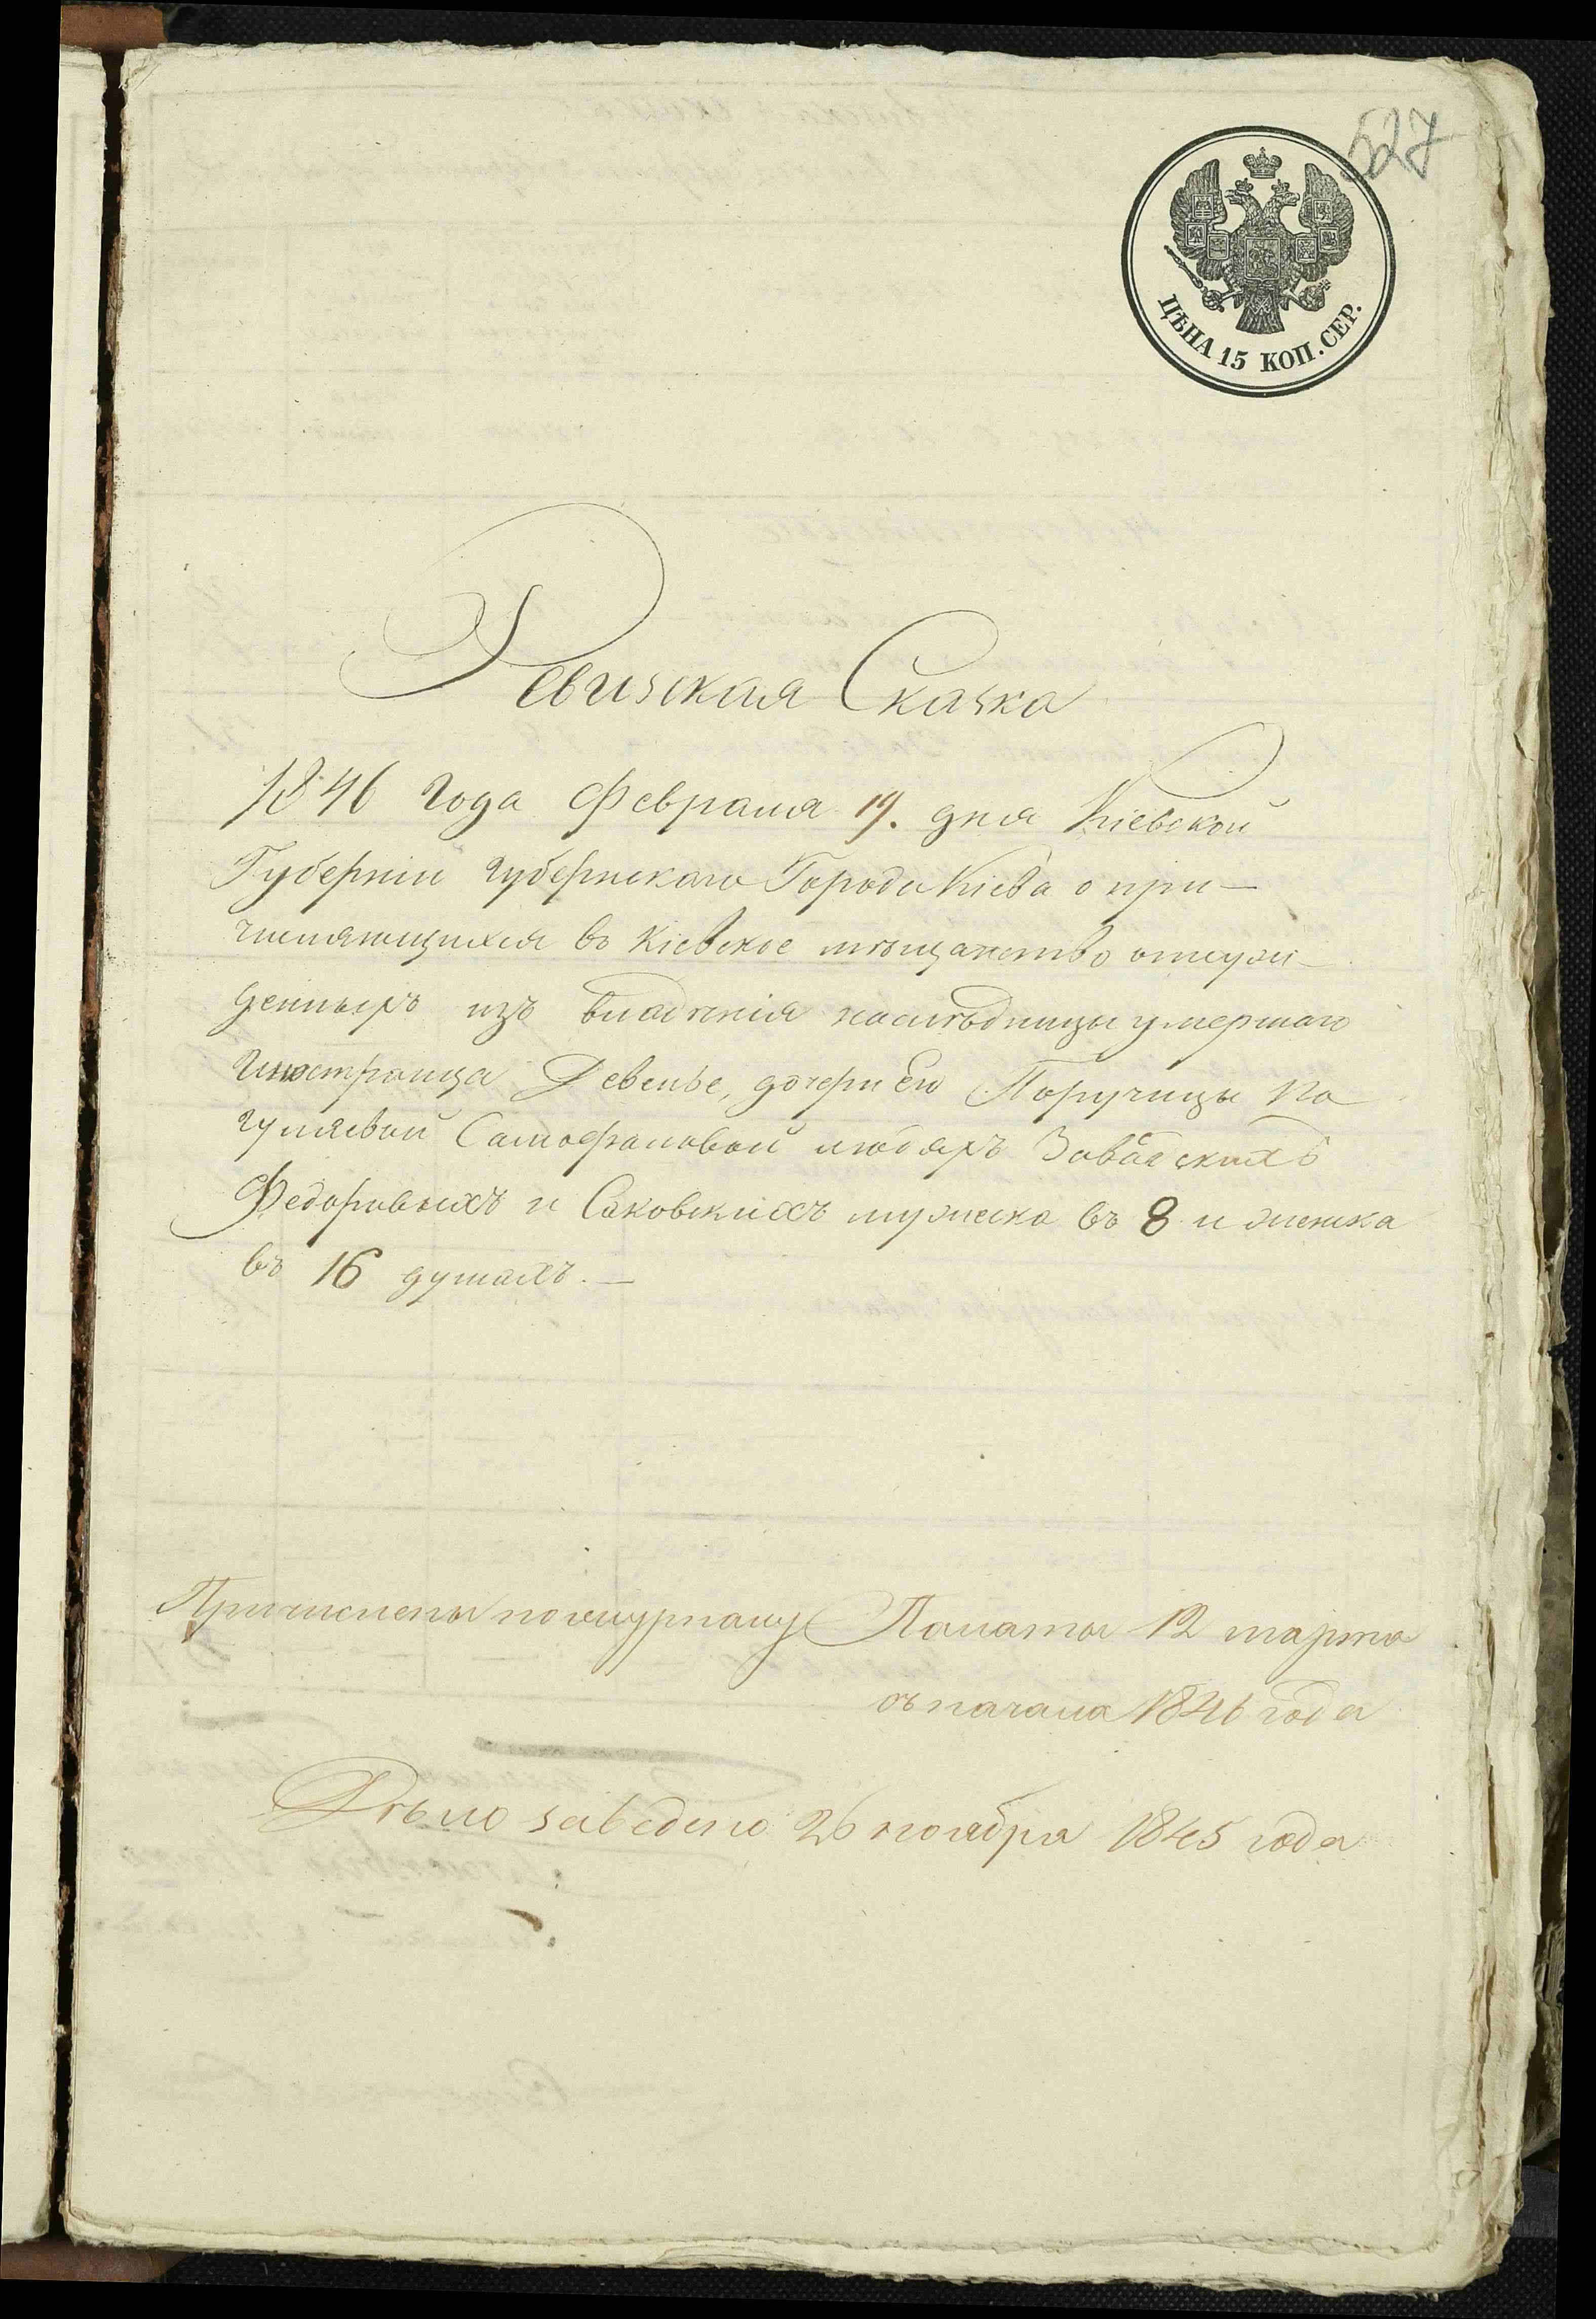 527
ЦѢНА 15 КОП. СЕР.
Ревизская Сказка
1846 года Февраля 19. дня Кіевской
Губерніи губернскаго Города Кіева о при-
числяющихся въ Кіевское мѣщанство отсуж-
денныхъ изъ владѣнія наслѣдницы умершаго
Иностранца Девенье, дочери Его Поручицы Ка
гуляевой Самофаловой людяхъ Завадскихъ
Федоровыхъ и Саковскихъ мужеска въ 8 и женска
въ 16 душахъ. —
Причислены по журналу Палаты 12 марта
съ начала 1846 года
Дѣло заведено 26 ноября 1845 года